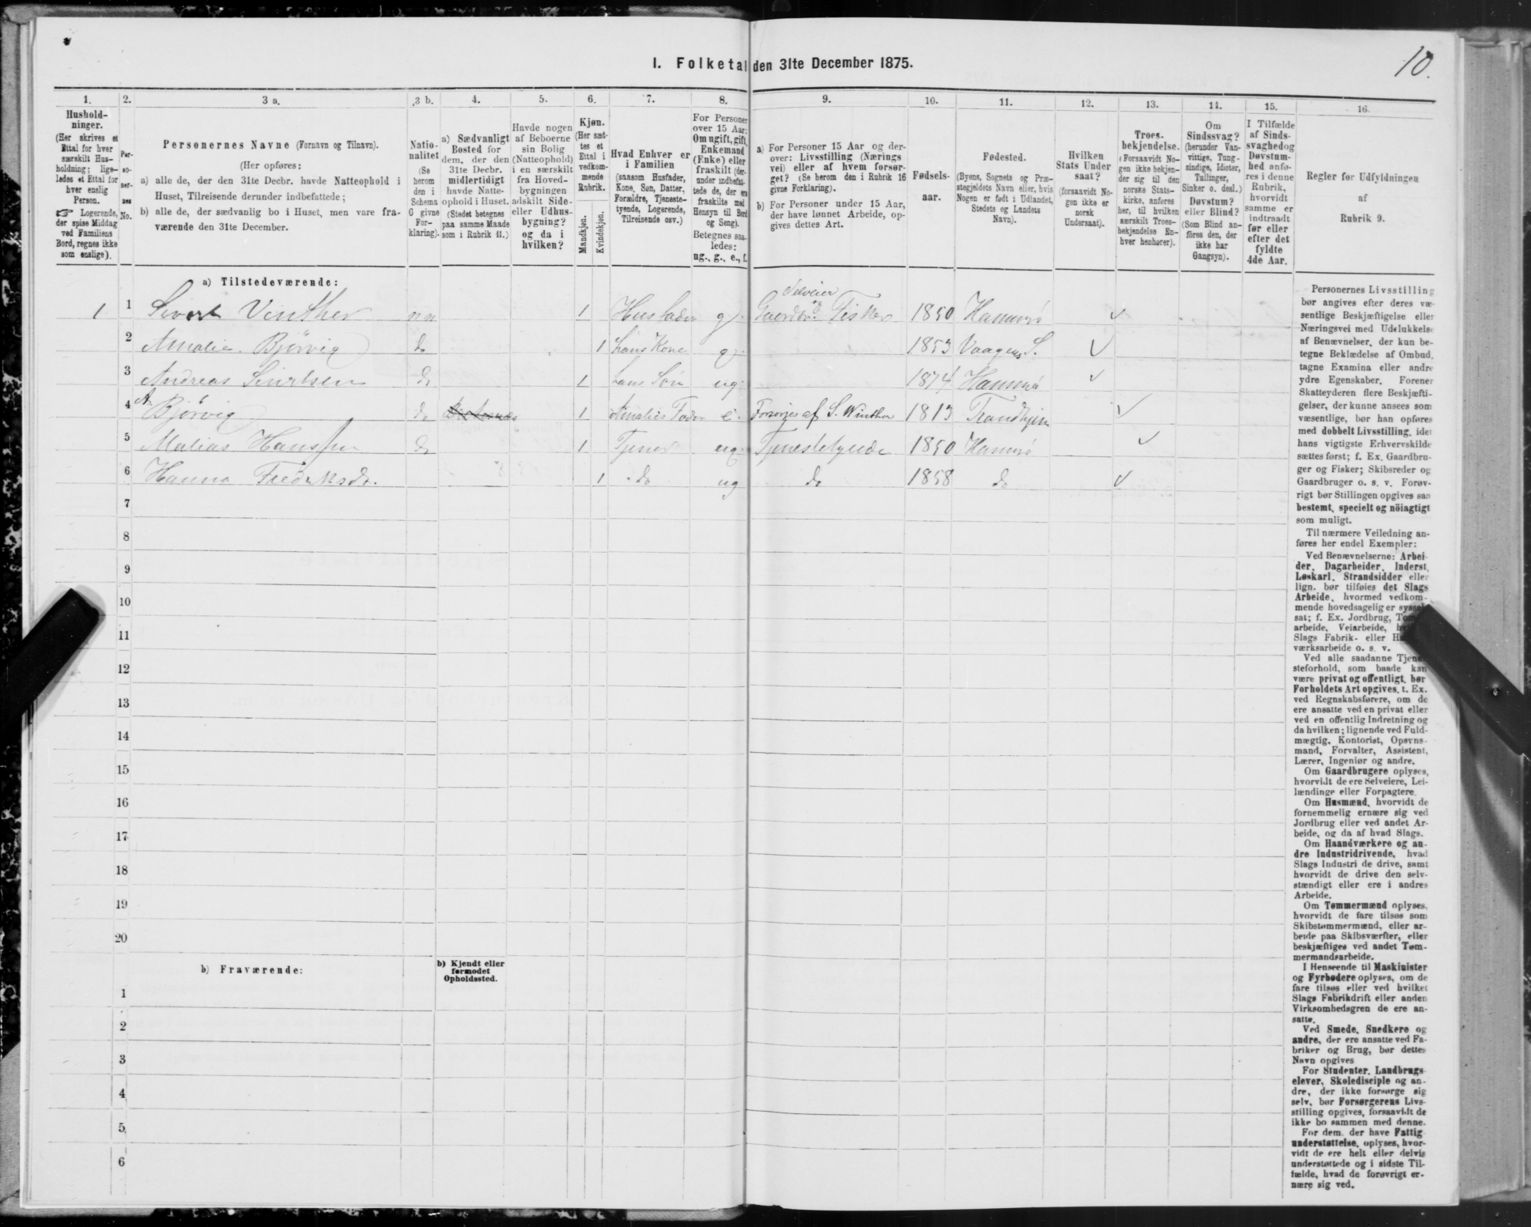 10.
I. Folketal den 31te December 1875.
1. 2. 3 a. 3 b. 4. 5. 6. 7. 8. 9. 10. 11. 12. 13. 14. 15. 16.
Hushold-
ninger.
(Her skrives et
Ettal for hver
særskilt Hus-
holdning; lige-
ledes et Ettal for
hver enslig
Person.
☞ Logerende,
der spise Middag
ved Familiens
Bord, regnes ikke
som enslige).
Per-
so-
ner-
nes
No.
Personernes Navne (Fornavn og Tilnavn).
(Her opføres:
a) alle de, der den 31te Decbr. havde Natteophold i
Huset, Tilreisende derunder indbefattede;
b) alle de, der sædvanlig bo i Huset, men vare fra-
værende den 31te December.
Natio-
nalitet
(Se
herom
den i
Schema
6 givne
For-
klaring).
a) Sædvanligt
Bosted for
dem, der den
31te Decbr.
midlertidigt
havde Natte-
ophold i Huset.
(Stedet betegnes
paa samme Maade
som i Rubrik 11.)
Havde nogen
af Beboerne
sin Bolig
(Natteophold)
i en særskilt
fra Hoved-
bygningen
adskilt Side-
eller Udhus-
bygning?
og da i
hvilken?
Kjøn.
(Her sæt-
tes et
Ettal i
vedkom-
mende
Rubrik.
Mandkjøn.
Kvindekjøn.
Hvad Enhver er
i Familien
(saasom Husfader,
Kone, Søn, Datter,
Forældre, Tjeneste-
tyende, Logerende,
Tilreisende osv.)
For Personer
over 15 Aar:
Om ugift, gift,
Enkemand
(Enke) eller
fraskilt (der-
under indbefat-
tede de, der ere
fraskilte med
Hensyn til Bord
og Seng).
Betegnes saa-
ledes:
ug., g., e., f.
a) For Personer 15 Aar og der-
over: Livsstilling (Nærings
vei) eller af hvem forsør-
get? (Se herom den i Rubrik 16
givne Forklaring).
b) For Personer under 15 Aar,
der have lønnet Arbeide, op-
gives dettes Art.
Fødsels-
aar.
Fødested.
(Byens, Sognets og Præ-
stegjeldets Navn eller, hvis
Nogen er født i Udlandet,
Stedets og Landets
Navn).
Hvilken
Stats Under
saat?
(forsaavidt No-
gen ikke er
norsk
Undersaat).
Troes-
bekjendelse.
(Forsaavidt No-
gen ikke bekjen-
der sig til den
norske Stats-
kirke, anføres
her, til hvilken
særskilt Troes-
bekjendelse En-
hver henhører).
Om
Sindssvag?
(herunder Van-
vittige, Tung-
sindige, Idioter,
Tullinger,
Sinker o. desl.)
Døvstum?
eller Blind?
(Som Blind an-
føres den, der
ikke har
Gangsyn).
I Tilfælde
af Sinds-
svaghed og
Døvstum-
hed anfø-
res i denne
Rubrik,
hvorvidt
samme er
indtraadt
før eller
efter det
fyldte
4de Aar.
Regler for Udfyldningen
af
Rubrik 9.
a) Tilstedeværende:
Selveier
1 1 Sivert Vinther 1 Husfader g. Gaardbr. og Fisker 1850 Hammerø
2 Amalie Bjørvig do 1 hans Kone g. 1853 Vaagens S.
3 Andreas Sivertsen do 1 hans Søn ug. 1874 Hammerø
4 A. Bjørvig do 1 Amalies Fader e. Forsørges af S. Winther 1813 Trondhjem
5 Matias Hanssen do 1 Tjener ug. Tjenestetyende 1850 Hammerø
6 Hanna Fredriksdr. 1 do ug do 1858 do
7
8
9
10
11
12
13
14
15
16
17
18
19
20
b) Fraværende:
b) Kjendt eller
formodet
Opholdssted.
1
2
3
4
5
6
Personernes Livsstilling
bør angives efter deres væ-
sentlige Beskjæftigelse eller
Næringsvei med Udelukkelse
af Benævnelser, der kun be-
tegne Beklædelse af Ombud,
tagne Examina eller andre
ydre Egenskaber. Forener
Skatteyderen flere Beskjæfti-
gelser, der kunne ansees som
væsentlige, bør han opføres
med dobbelt Livsstilling, idet
hans vigtigste Erhvervskilde
sættes først; f. Ex. Gaardbru-
ger og Fisker; Skibsreder og
Gaardbruger o. s. v. Forøv-
rigt bør Stillingen opgives saa
bestemt, specielt og nöiagtigt
som muligt.
Til nærmere Veiledning an-
føres her endel Exempler:
Ved Benævnelserne: Arbei-
der, Dagarbeider, Inderst,
Løskarl, Strandsidder eller
lign. bør tilføies det Slags
Arbeide, hvormed vedkom-
mende hovedsagelig er syssel-
sat; f. Ex. Jordbrug,
arbeide, Veiarbeide,
Slags Fabrik- eller
værksarbeide o. s. v.
Ved alle saadanne Tjene-
steforhold, som baade kan
være privat og offentligt, bør
Forholdets Art opgives, t. Ex.
ved Regnskabsførere, om de
ere ansatte ved en privat eller
ved en offentlig Indretning og
da hvilken; lignende ved Fuld-
mægtig, Kontorist, Opsyns-
mand, Forvalter, Assistent,
Lærer, Ingeniør og andre.
Om Gaardbrugere oplyses,
hvorvidt de ere Selveiere, Lei-
lændinge eller Forpagtere.
Om Husmænd, hvorvidt de
fornemmelig ernære sig ved
Jordbrug eller ved andet Ar-
beide, og da af hvad Slags.
Om Haandværkere og an-
dre Industridrivende, hvad
Slags Industri de drive, samt
hvorvidt de drive den selv-
stændigt eller ere i andres
Arbeide.
Om Tømmermænd oplyses,
hvorvidt de fare tilsøs som
Skibstømmermænd, eller ar-
beide paa Skibsværfter, eller
beskjæftiges ved andet Tøm-
mermandsarbeide.
I Henseende til Maskinister
og Fyrbødere oplyses, om de
fare tilsøs eller ved hvilket
Slags Fabrikdrift eller anden
Virksombedsgren de ere an-
satte.
Ved Smede, Snedkere og
andre, der ere ansatte ved Fa-
briker og Brug, bør dettes
Navn opgives
For Studenter, Landbrugs-
elever, Skoledisciple og an-
dre, der ikke forsørge sig
selv, bør Forsørgerens Livs-
stilling opgives, forsaavidt de
ikke bo sammen med denne.
For dem, der have Fattig-
understøttelse, oplyses, hvor-
vidt de ere helt eller delvis
understøttede og i sidste Til-
fælde, hvad de forøvrigt er-
nære sig ved.